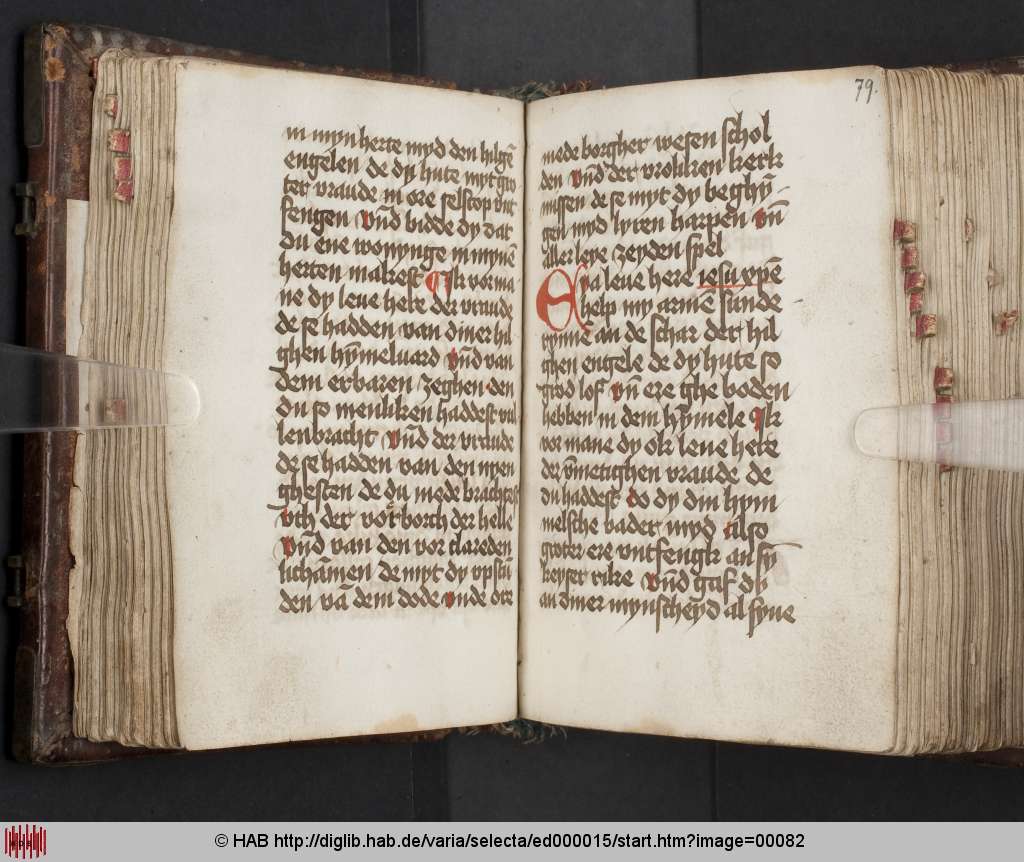 in myn herte myd den hilgē
engelen de dy hute myt gro
ter vraude in ore selscop vnt
fengen vn̄d bidde dy dat
du ene wonynge in mynē
herten makest Jk vorma
ne dy leue here der vraude
de se hadden van diner hil
ghen hȳmeluard vn̄d van
dem erbaren zeghen den
du so menliken haddest vul
lenbracht vn̄d der vraude
de se hadden van den nyen
ghesten de du mede brachtest
vth der vorborch der helle
vn̄d van den vor clareden
lichāmen de myt dy vpstū
den vā dem dode vnde ore
79.
mede borgher wesen schol
den vn̄d der vroliken kerk
missen de se myt dy beghȳ
gen myd lyren harpen vn̄
aller leye zeyden spel
Eya leue here iesu xpē
help my armē sunde
rynne an de schar der hil
ghen engele de dy hute so
grod lof vn̄ ere ghe boden
hebben in dem hȳmele Jk
vor mane dy ok leue here
der v̄metighen vraude de
du haddest do dy din hym
melsche vader myd also
groter ere vntfengk an sȳ
keyser rike vn̄d gaf dy
an diner mynscheyd al syne
© HAB http://diglib.hab.de/varia/selecta/ed000015/start.htm?image=00082